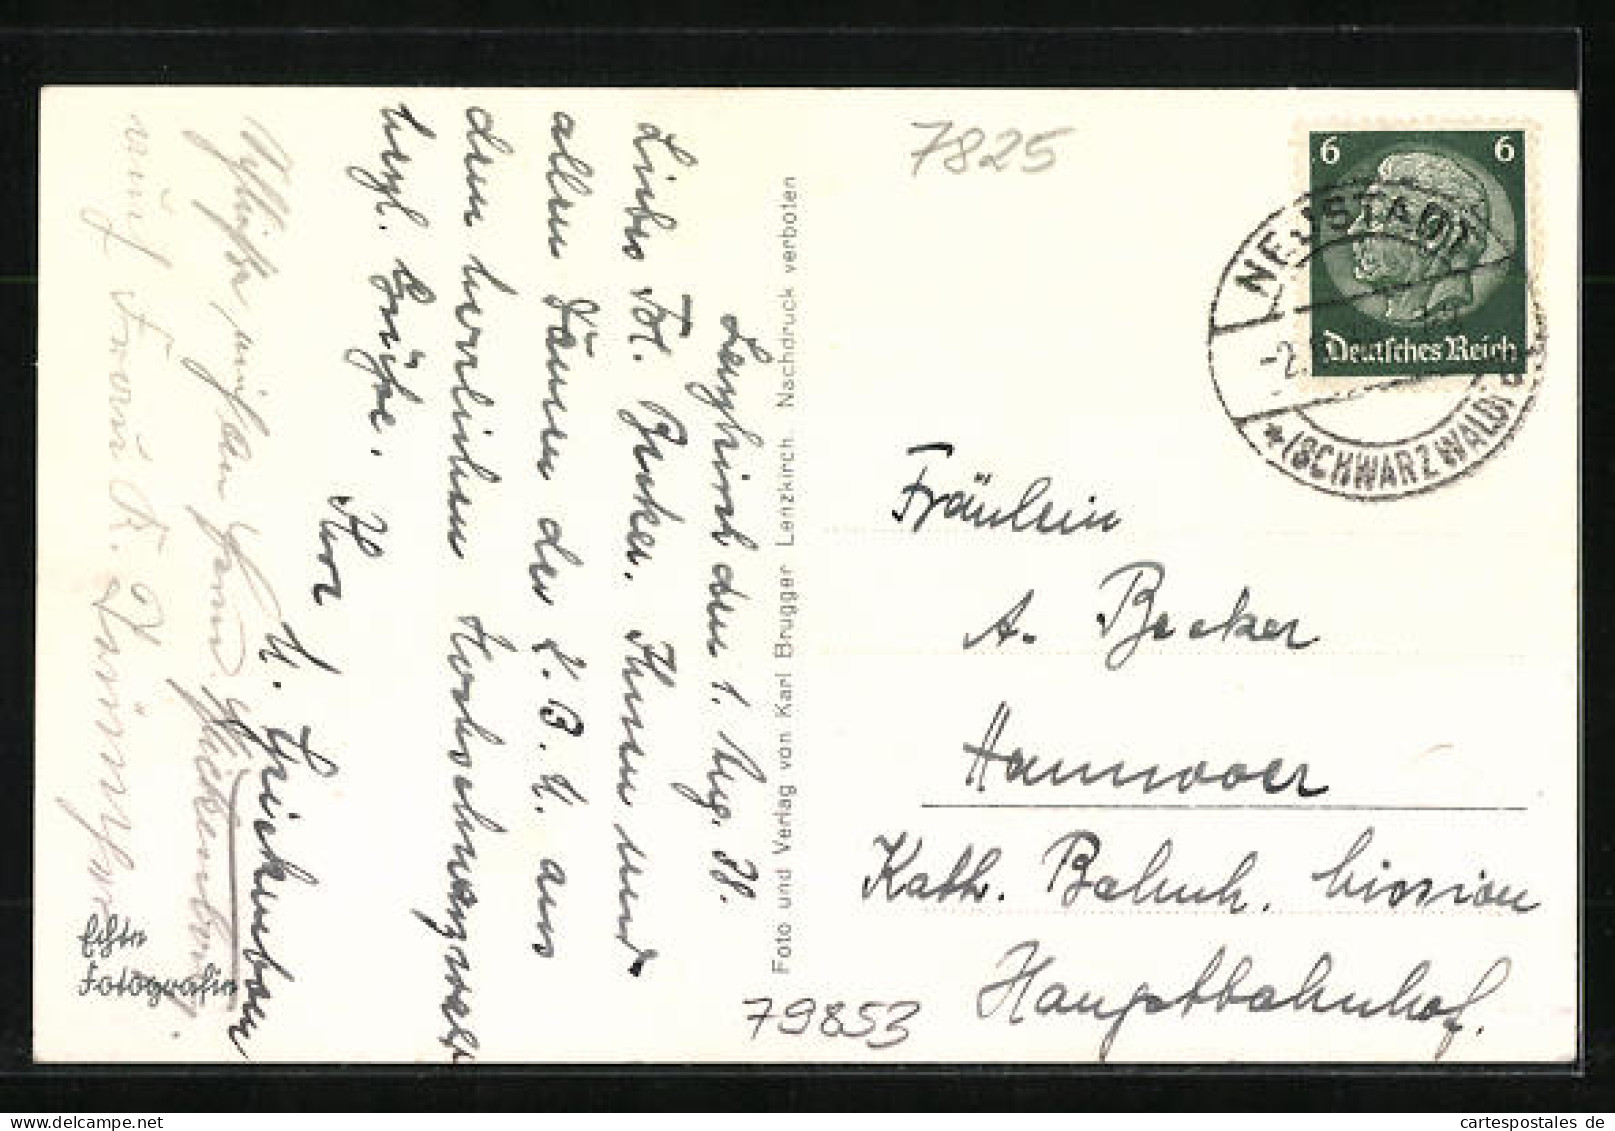 Lenzkirch den 1. Aug. 38.
Liebes Frl. Becker. Ihnen und
allen Damen der K.B.M. aus
dem herrlichen Hochschwarzwald
herzl. Grüße. Ihre
M. Grickenbom
und Frau A.
Echte
Fotografie
Foto und Verlag von Karl Brugger Lenzkirch. Nachdruck verboten
7825
79853
6 6
Deutsches Reich
NEUSTADT
-2.
*(SCHWARZWALD)
Fräulein
A. Becker
Hannover
Kath. Bahnh. Mission
Hauptbahnhof.
cartespostales.de